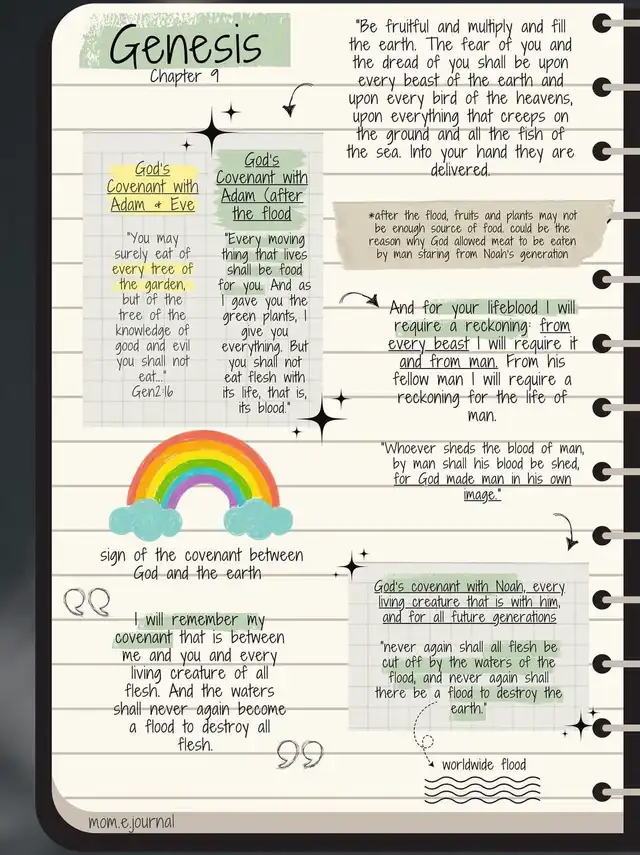 Genesis
Chapter 9
"Be fruitful and multiply and fill
the earth. The fear of you and
the dread of you shall be upon
every beast of the earth and
upon every bird of the heavens,
upon everything that creeps on
the ground and all the fish of
the sea. Into your hand they are
delivered.
God's
Covenant with
Adam & Eve
"You may
surely eat of
every tree of
the garden,
but of the
tree of the
knowledge of
good and evil
you shall not
eat..."
Gen2:16
God's
Covenant with
Adam (after
the flood
"Every moving
thing that lives
shall be food
for you. And as
I gave you the
green plants, I
give you
everything. But
you shall not
eat flesh with
its life, that is,
its blood."
*after the flood, fruits and plants may not
be enough source of food. could be the
reason why God allowed meat to be eaten
by man staring from Noah's generation
And for your lifeblood I will
require a reckoning: from
every beast I will require it
and from man. From his
fellow man I will require a
reckoning for the life of
man.
"Whoever sheds the blood of man,
by man shall his blood be shed,
for God made man in his own
image."
sign of the covenant between
God and the earth
I will remember my
covenant that is between
me and you and every
living creature of all
flesh. And the waters
shall never again become
a flood to destroy all
flesh.
God's covenant with Noah, every
living creature that is with him,
and for all future generations
"never again shall all flesh be
cut off by the waters of the
flood, and never again shall
there be a flood to destroy the
earth."
worldwide flood
mom.e.journal